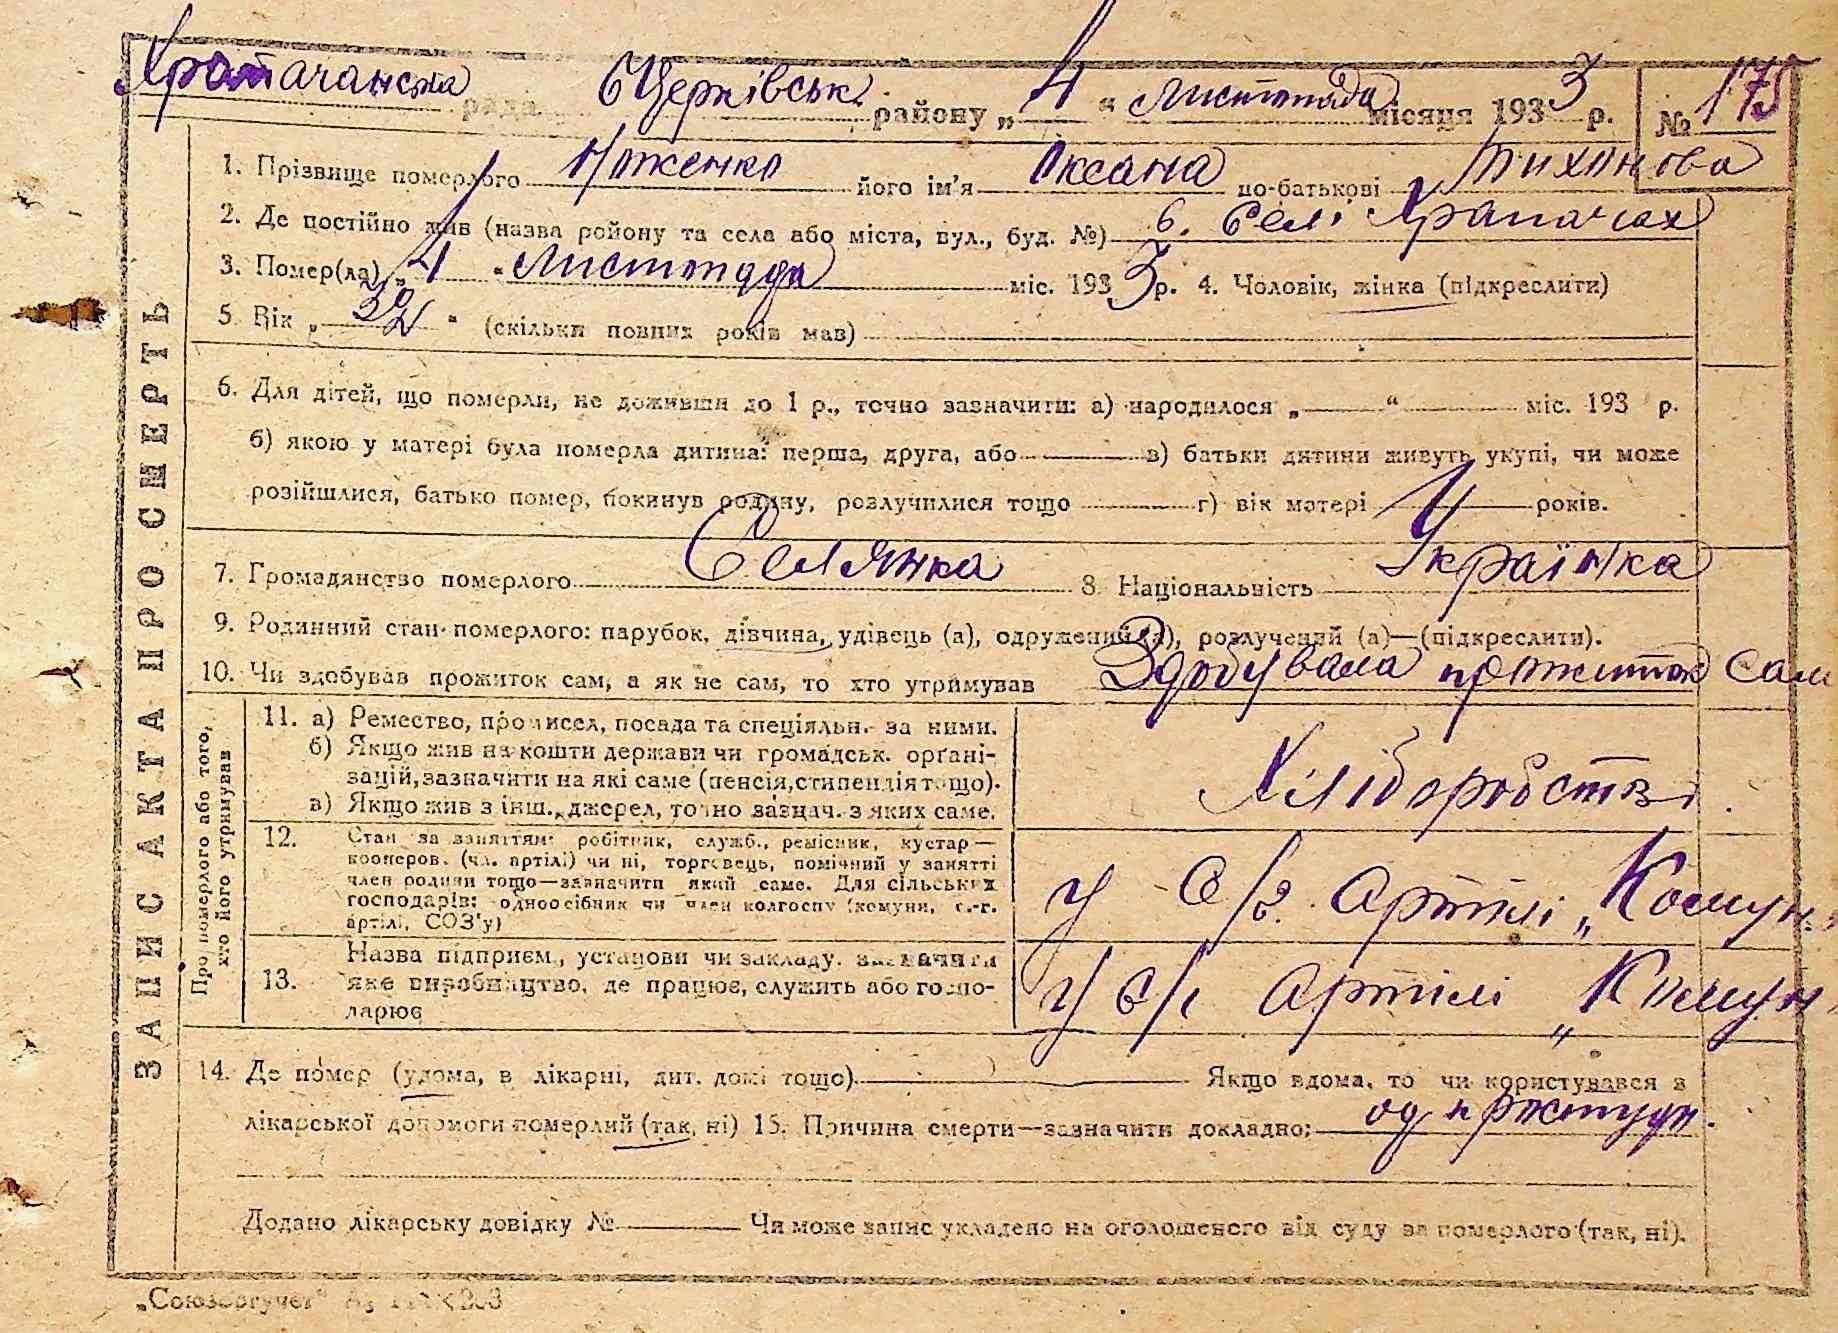 Храпачанська рада БЦерківськ. району „ 4 “ Листопада місяця 1933 р. № 175
1. Прізвище померлого Ноженко його ім'я Оксана по-батькові Тихонова
2. Де постійно жив (назва району та села або міста, вул., буд. №) в. Селі Храпачах
3. Помер(ла) „ 4 “ Листопада міс. 1933 р. 4. Чоловік, жінка (підкреслити)
5. Вік „ “ (скільки повних років мав)
6. Для дітей, що померли, не доживши до 1 р., точно зазначити: а) народилося „ “ міс. 193 р.
б) якою у матері була померла дитина: перша, друга, або в) батьки дитини живуть укупі, чи може
розійшлися, батько помер, покинув родину, розлучилися тощо г) вік матері років.
7. Громадянство померлого Селянка 8. Національність Українка
9. Родинний стан померлого: парубок, дівчина, удівець (а), одружений (а), розлучений (а)—(підкреслити).
10. Чи здобував прожиток сам, а як не сам, то хто утримував Здобувала прожиток Сама
ЗАПИС АКТА ПРО СМЕРТЬ
Про померлого або того,
хто його утримував
11. а) Ремество, промисел, посада та спеціяльн. за ними.
б) Якщо жив на кошти держави чи громадськ. орґані-
зацій, зазначити на які саме (пенсія, стипендія тощо).
в) Якщо жив з інш. джерел, точно зазнач. з яких саме.
Хліборобстві
12. Стан за заняттям: робітник, служб., ремісник, кустар—
кооперов. (чл. артілі) чи ні, торговець, помічний у занятті
член родини тощо—зазначити який саме. Для сільських
господарів: одноосібник чи член колгоспу (комуни, с.-г.
артілі, СОЗ'у)
у С/г. Артілі „Комун.
13. Назва підприєм., установи чи закладу. зазначити
яке виробництво, де працює, служить або госпо-
дарює
у с/г Артілі „Комун.
14. Де помер (удома, в лікарні, дит. домі тощо) Якщо вдома, то чи користувався з
лікарської допомоги померлий (так, ні) 15. Причина смерти—зазначити докладно:
Додано лікарську довідку № Чи може запис укладено на оголошеного від суду за померлого (так, ні).
„Союзоргучет“